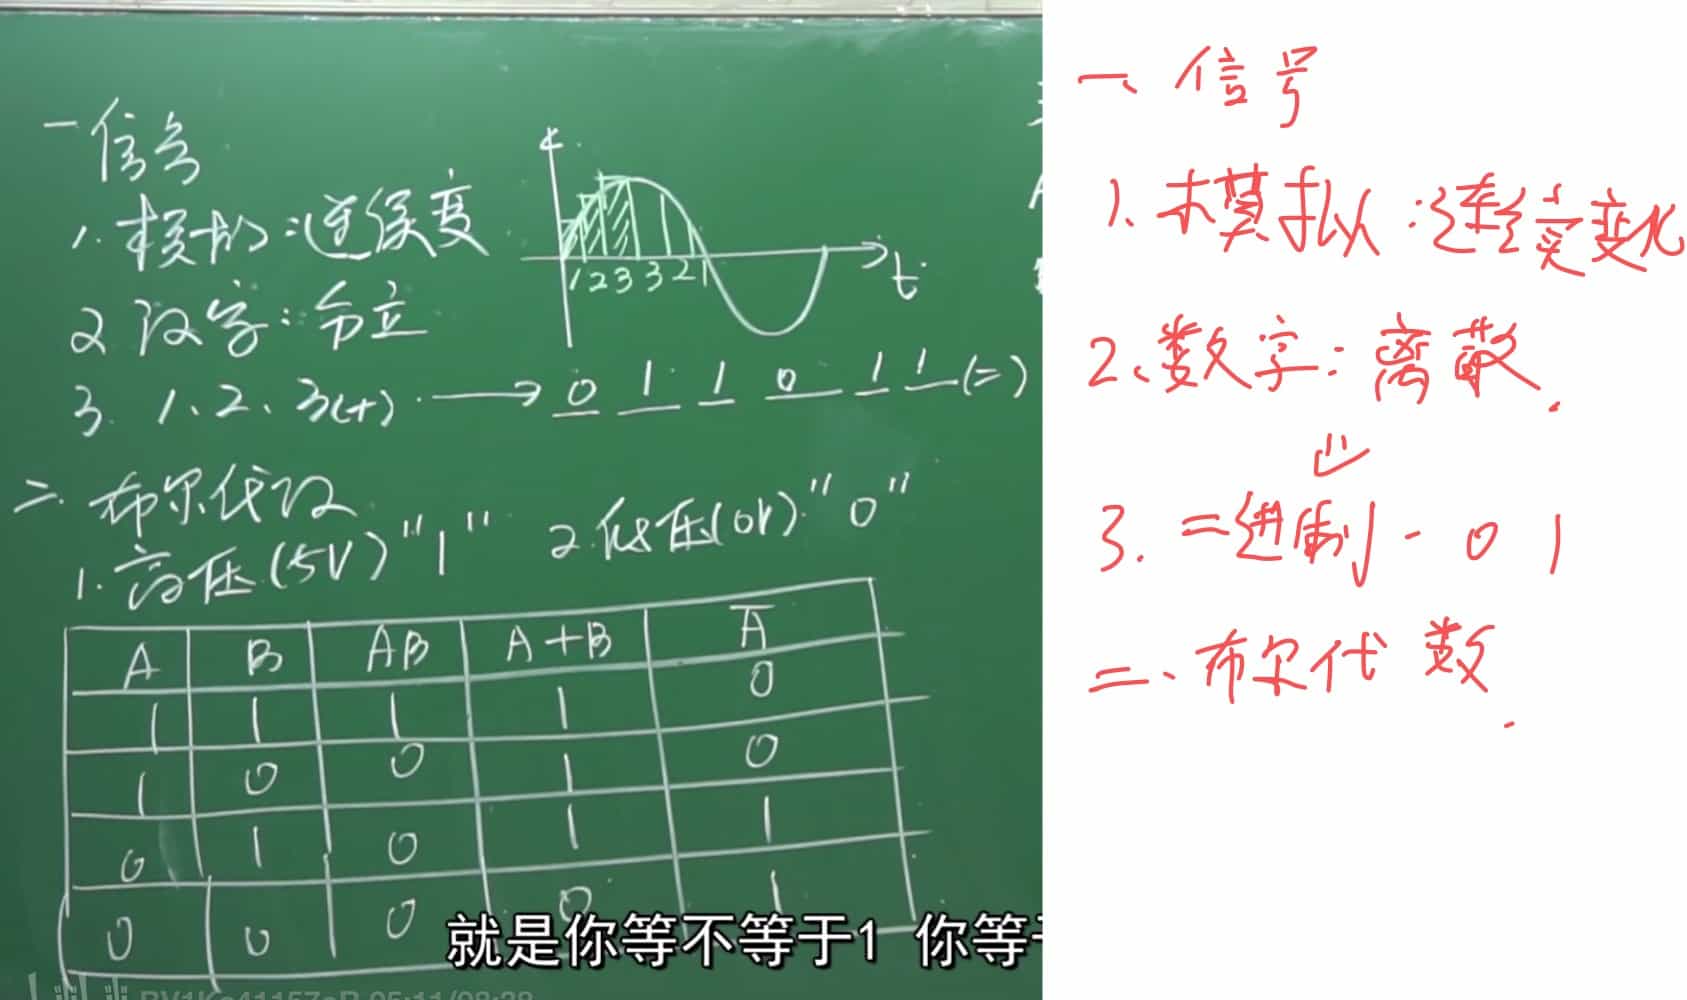 一 信号
1. 模拟:连续变
2 数字:分立
3. 1、2、3(十) → 0 1 1 0 1 1 (二)
1 2 3 3 2 1
t
二. 布尔代数
1. 高压(5V)"1" 2. 低压(0V)"0"
A B AB A+B A̅
1 1 1 1 0
1 0 0 1 0
0 1 0 1 1
0 0 0 0 1
就是你等不等于1 你等于
一、信号
1、模拟:连续变化
2、数字:离散.
3. 二进制-0 1
二、布尔代数.